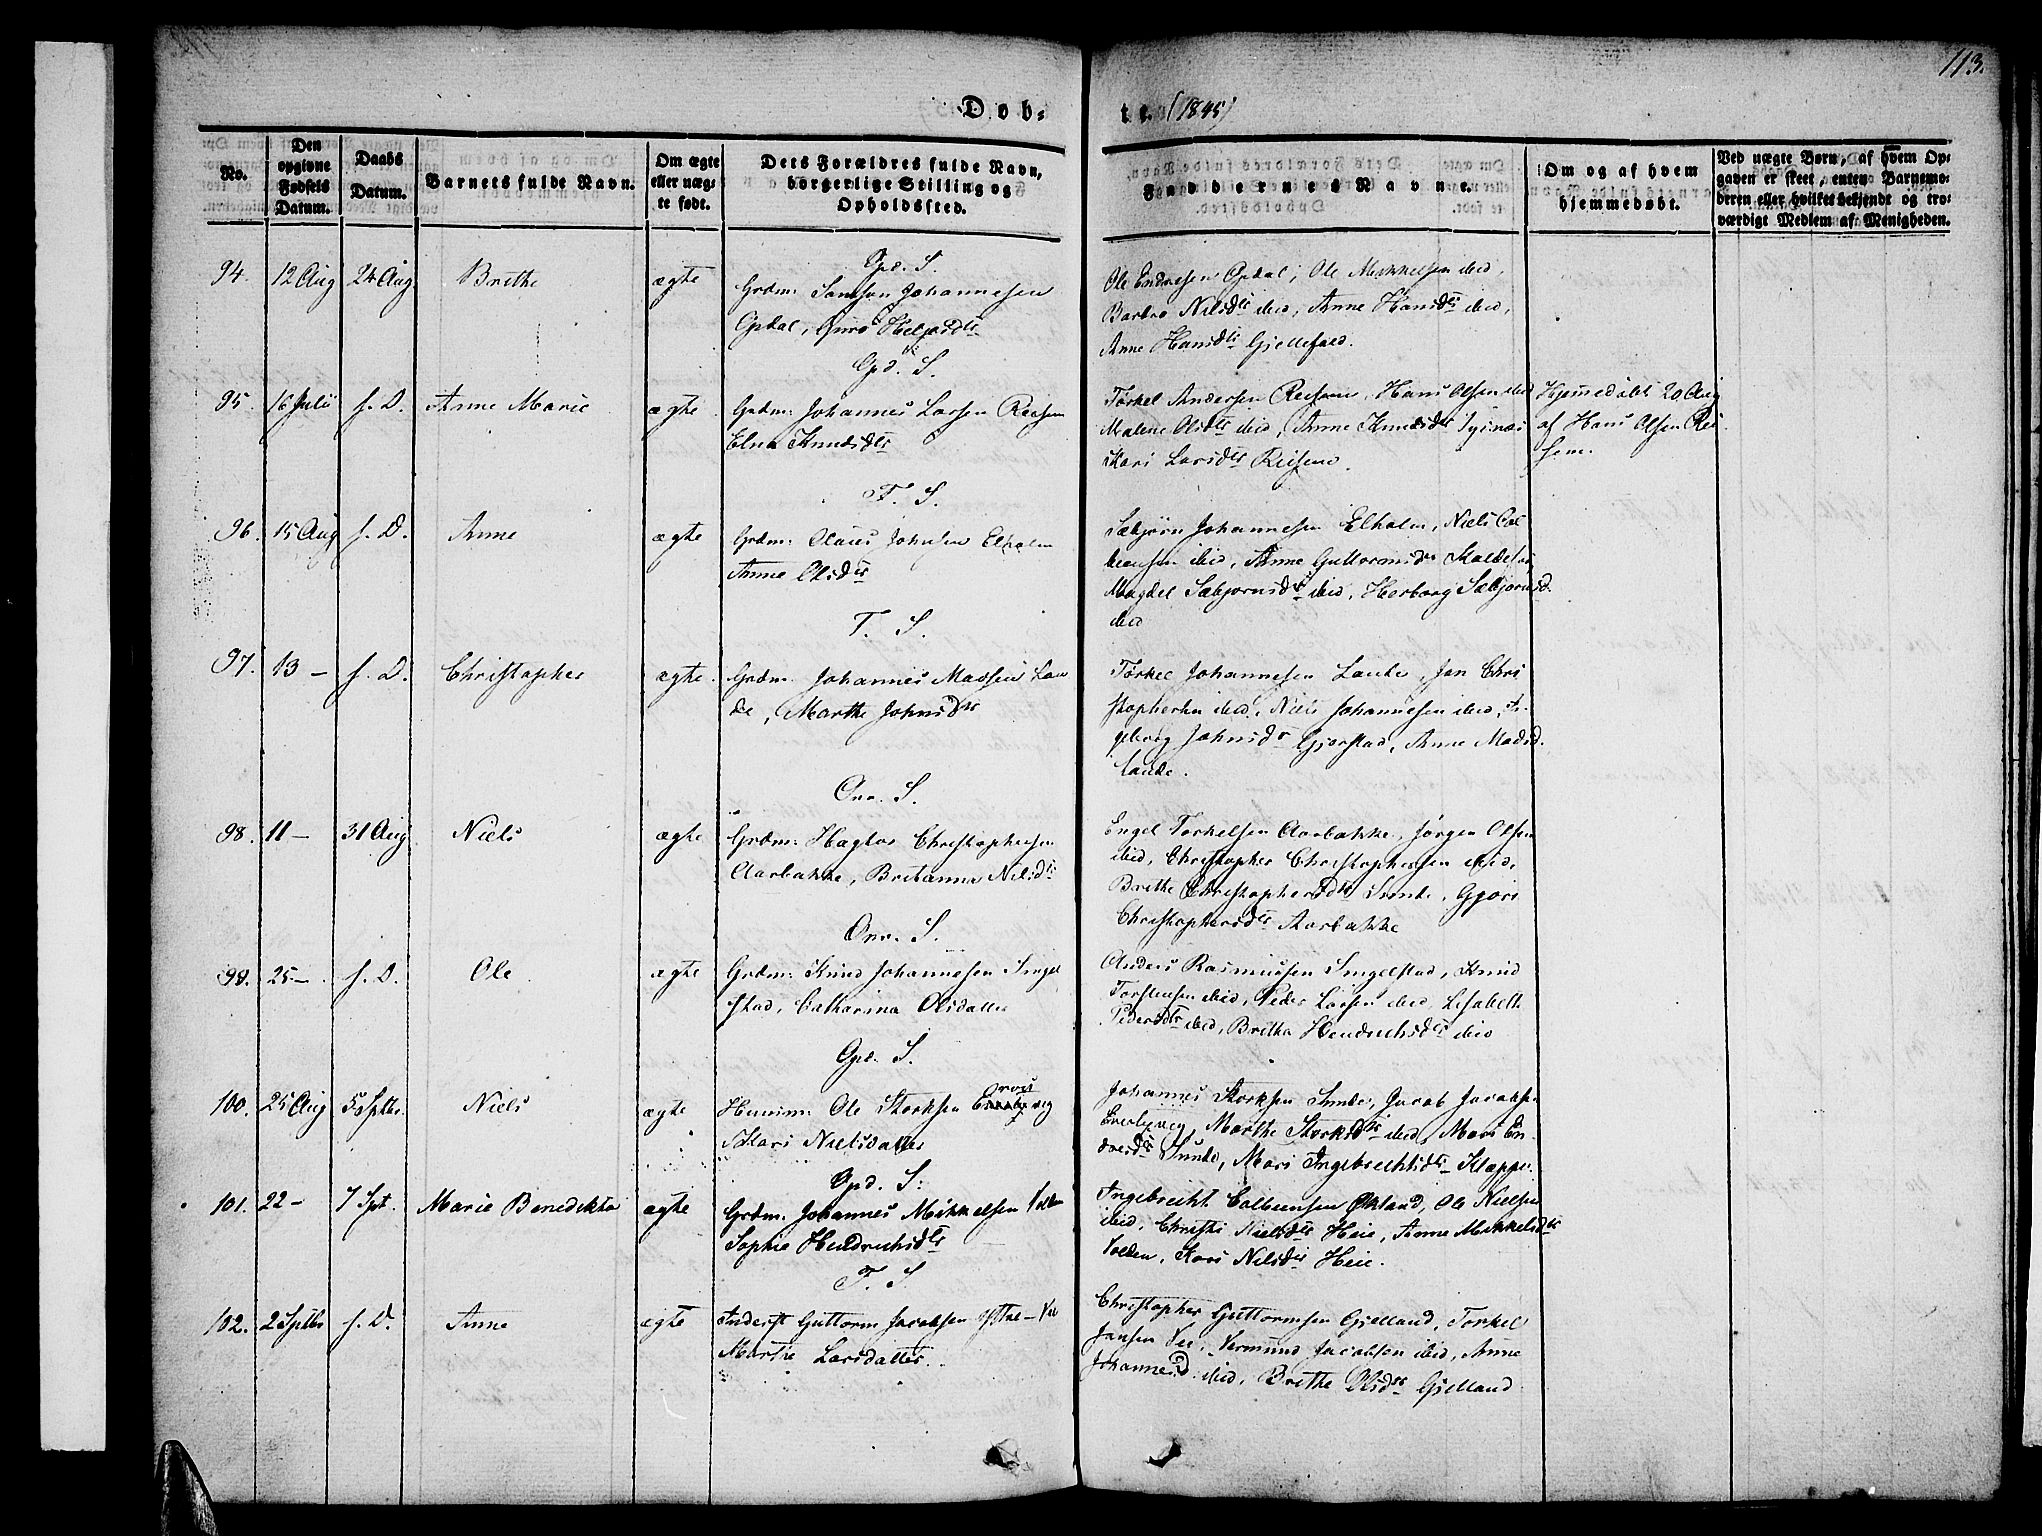 113.
Døb-
te. (1845)
No.
Den opgivne Fødsels Datum.
Daabs Datum.
Barnets fulde Navn.
Om ægte eller uægte født.
Dets Forældres fulde Navn, borgerlige Stilling og Opholdssted.
Faddernes Navne.
Om og af hvem hjemmedøbt.
Ved uægte Børn, af hvem Opgaven er skeet, enten Barnemoderen eller hvilket bekjendt og troværdigt Medlem af Menigheden.
Opd. S.
94. 12 Aug 24 Aug Brithe ægte Grdm: Samson Johannesen
Opdal, Guro Helgesdtr
Ole Endresen Opdal, Ole Mikkelsen ibid,
Barbro Nilsdtr ibid, Anne Hansdtr ibid,
Anne Hansdtr Gjellefald.
Opd. S.
95. 16 Julii s. D. Anne Marie ægte Grdm: Johannes Larsen Reisem
Elna Knudsdtr
Tørkel Andersen Reisem, Hans Olsen ibid
Malene Olsdtr ibid, Anne Knudsdtr Sysnæs
Kari Larsdtr Reisem.
Hjemmedøbt 20 Aug
af Hans Olsen Rei-
sem.
F. S.
96. 15 Aug s. D. Anne ægte Grdm: Olaus Johnsen Elholm
Anne Olsdtr
Sæbjørn Johannesen Elholm, Niels Col
beensen ibid, Anne Guttormsdr
Magdel Sæbjørnsdtr ibid, Herborg Sæbjørnsd.
ibid
T. S.
97. 13 - s. D. Christopher ægte. Grdm: Johannes Madsen Lan
de, Marthe Johnsdtr
Tørkel Johannesen Lande, Jon Chri
stophersen ibid, Niels Johannesen ibid, In-
geborg Johnsdr Gjerstad, Anne Madsd.
Lande.
Onr. S.
98. 11 - 31 Aug Niels ægte Grdm: Hagtor Christophersen
Aarbakke, Britanna Nilsdtr
Engel Torkelsen Aarbakke, Jørgen Olsen
ibid, Christopher Christophersen ibid,
Brithe Christophersdtr Sunde, Gjøri
Christophersdtr Aarbakke
Onr. S.
99. 25 - s. D. Ole ægte Grdm: Knud Johannesen Singel
stad, Catharina Olsdatter
Anders Rasmussen Singelstad, Knud
Torstensen ibid, Peder Larsen ibid, Lisabeth
Pedersdtr ibid, Britha Hendrichsdtr ibid
Opd. S.
100. 25 Aug 5 Sptbr. Niels ægte Huusm: Ole Storksen
Kari Nielsdatter
Johannes Storksen Sunde, Jacob Jacobsen
Marthe Storksdtr ibid, Mari En
dresdtr Sunde, Mari Ingebrechtsdtr Kleppe.
Opd. S:
101. 22 - 7 Spt. Marie Benedikta ægte Grdm: Johannes Mikkelsen Volden
Sophie Hendrichsdtr
Ingebrecht Colbeensen Økland, Ole Nielsen
ibid, Christi Nielsdtr Heie, Anne Mikkelsdtr
Volden, Kari Nilsdtr Heie.
F. S.
102. 2 Sptbr s. D. Anne ægte Inderst Guttorm Jacobsen Vee
Marthe Larsdatter
Christopher Guttormsen Gjelland, Torkel
Jansen Vee, Vermund Jacobsen ibid, Anne
Johannesd. ibid, Brithe Olsdr Gjelland